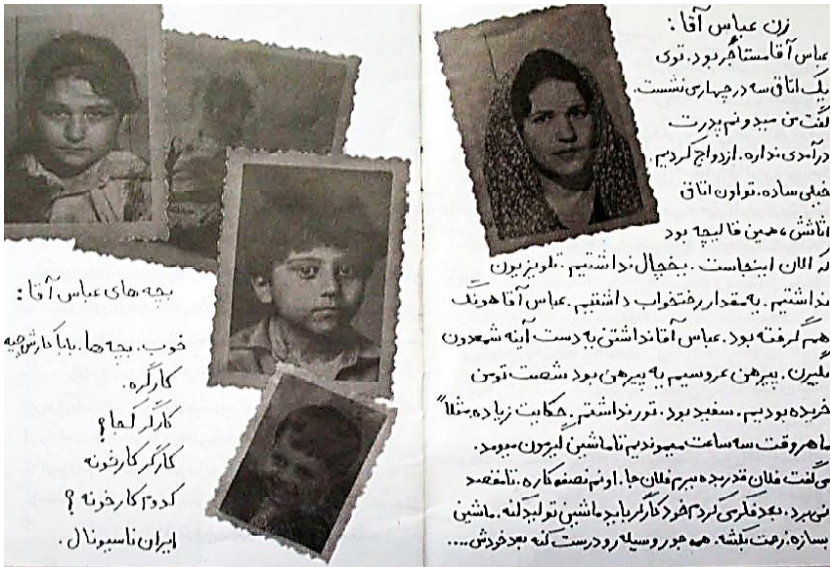 زن عباس آقا:
عباس آقا مستأجر بود. توی
یک اتاق سه در چهار می نشست.
گفت من میدونم پدرت
درآمدی نداره. ازدواج کردیم.
خیلی ساده. تو اون اتاق
اثاثش، همین قالیچه بود
که الان اینجاست. یخچال نداشتیم. تلویزیون
نداشتیم. یه مقدار رختخواب داشتیم. عباس آقا
هم گرفته بود. عباس آقا نداشتن یه دست آینه شمعدون
بگیرن. پیرهن عروسیم یه پیرهن بود شصت تومن
خریده بودیم. سفید بود. تور نداشتم. حکایت زیاده مثلاً
ما هر وقت سه ساعت میموندیم تا ماشین گیرمون میومد.
می گفت فلان قدر بده ببرم فلان جا. اونم نصفه کاره. تا مقصد
نمی برد. بعد فکر می کردم خود کارگر باید ماشین تولید کنه. ماشین
بسازه. زحمت بکشه. همه جور وسیله رو درست کنه بعد خودش ....
بچه های عباس آقا:
خوب. بچه ها. بابا کارش چیه
کارگره.
کارگر کجا؟
کارگر کارخونه
کدوم کارخونه؟
ایران ناسیونال.